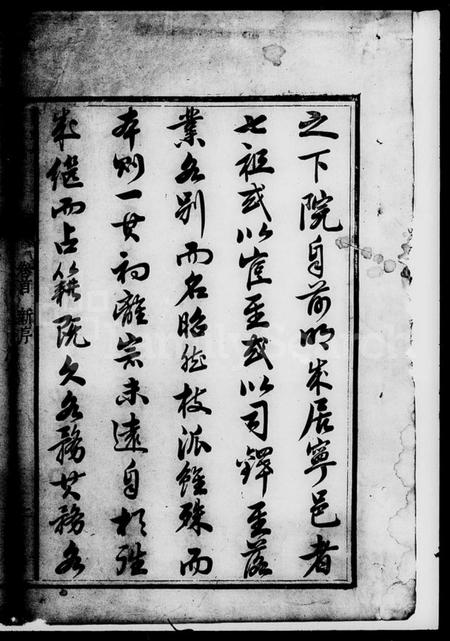 之下院自前明來居寧邑者
七祖或以宦至或以司鐸至落
業各别而名昭然枝派雖殊而
本則一其初離宗未遠自相往
來繼而占籍既久各務其務各
卷首 新序
FamilySearch